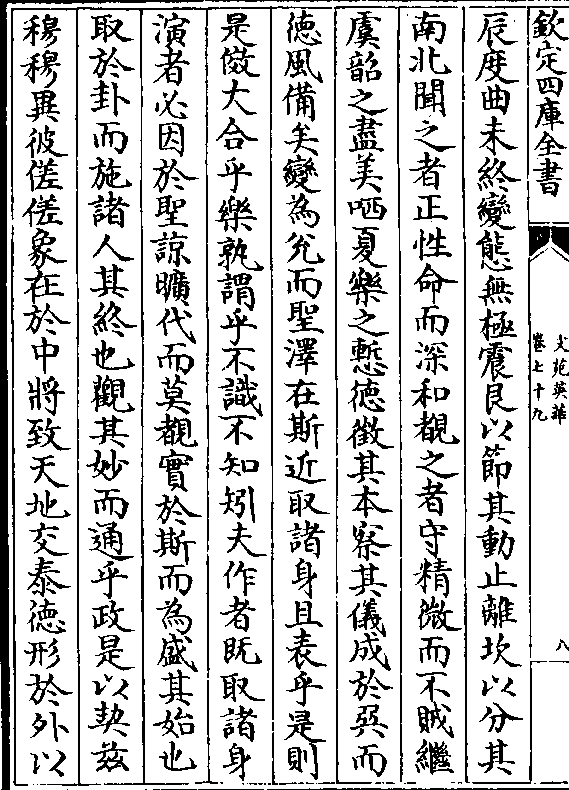 欽定四庫全書
文苑英華
卷七十九
八
辰度曲未終變態無極震艮以節其動止離坎以分其
南北聞之者正性命而深和覩之者守精微而不賊繼
虞韶之盡美哂夏樂之慙德徵其本察其儀成於㢲而
德風備矣變為兊而聖澤在斯近取諸身且表乎是則
是傚大合乎樂孰謂乎不識不知矧夫作者既取諸身
演者必因於聖諒曠代而莫覩實於斯而為盛其始也
取於卦而施諸人其終也觀其妙而通乎政是以契兹
穆穆異彼傞傞象在於中將致天地交泰德形於外以